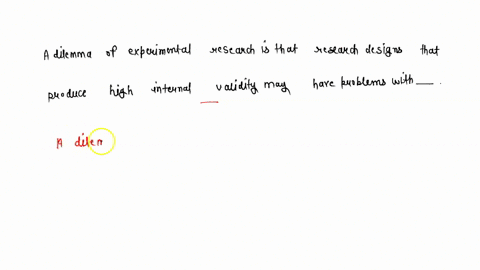 A dilemma of experimental research is that research designs that
produce high internal validity may have problems with ___.
A dilem